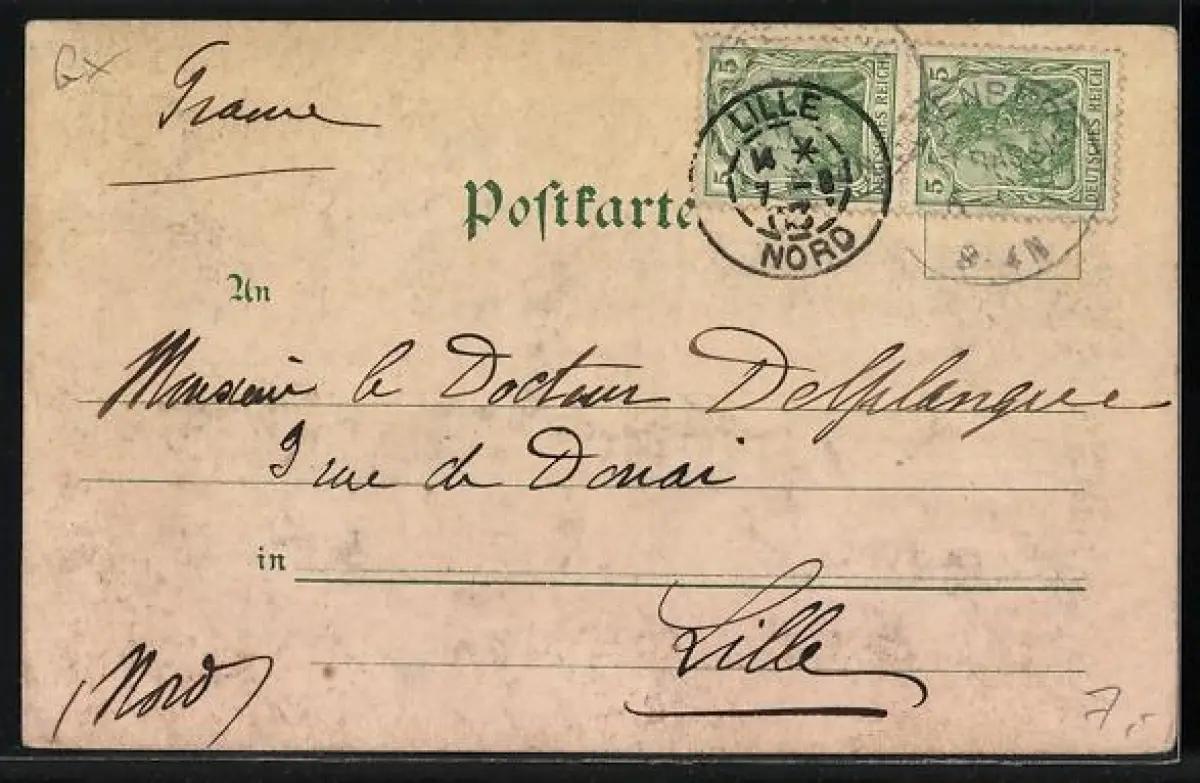 GX
France
Postkarte
5 5 DEUTSCHES REICH
5 5 DEUTSCHES REICH
LILLE
NORD
8-4N
An
Monsieur le Docteur Delplanque
3 rue de Douai
in
Lille
(Nord)
7,